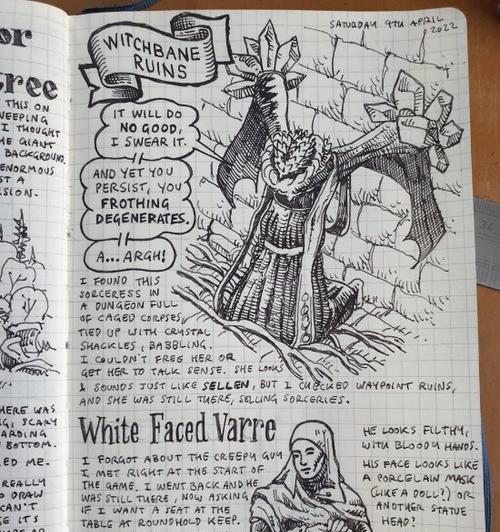 SATURDAY 9TH APRIL
2022
or
Tree
THIS ON
WEEPING
I THOUGHT
THE GIANT
BACKGROUND.
ENORMOUS
ST A
SION.
WITCHBANE
RUINS
IT WILL DO
NO GOOD,
I SWEAR IT.
AND YET YOU
PERSIST, YOU
FROTHING
DEGENERATES.
A... ARGH!
I FOUND THIS
SORCERESS IN
A DUNGEON FULL
OF CAGED CORPSES,
TIED UP WITH CRYSTAL
SHACKLES, BABBLING.
I COULDN'T FREE HER OR
GET HER TO TALK SENSE. SHE LOOKS
& SOUNDS JUST LIKE SELLEN, BUT I CHECKED WAYPOINT RUINS,
AND SHE WAS STILL THERE, SELLING SORCERIES.
HERE WAS
SCARY
ARDING
BOTTOM.
LED ME.
REALLY
DRAW
CAN'T
SE IT'S
White Faced Varre
I FORGOT ABOUT THE CREEPY GUY
I MET RIGHT AT THE START OF
THE GAME. I WENT BACK AND HE
WAS STILL THERE, NOW ASKING
IF I WANT A SEAT AT THE
TABLE AT ROUNDHOLD KEEP.
HE LOOKS FILTHY,
WITH BLOODY HANDS.
HIS FACE LOOKS LIKE
A PORCELAIN MASK
(LIKE A DOLL?) OR
ANOTHER STATUE
HEAD?